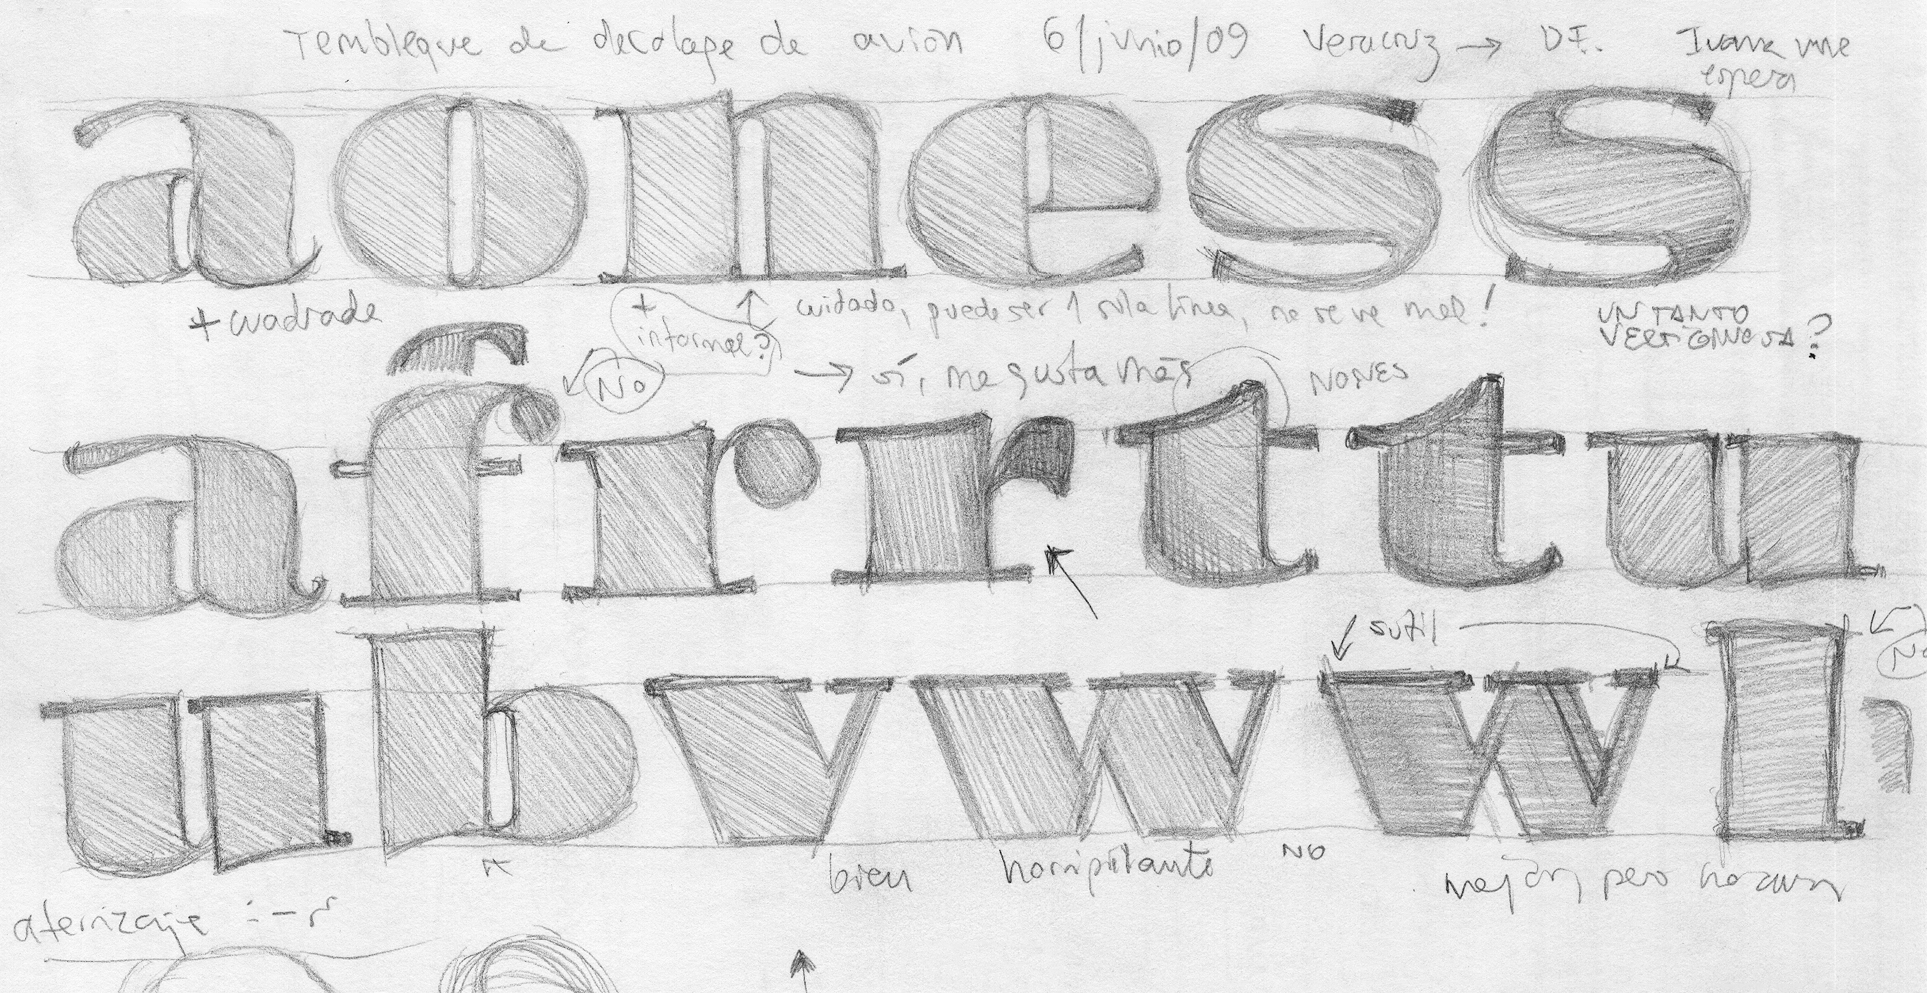 Tembleque de decolage de avión 6/junio/09 Veracruz → D.F. Ivana me espera
a o n e s s
+ cuadrada
+ informal?
↑ cuidado, puede ser 1 sola línea, no se ve mal!
UN TANTO VERTIGINOSA?
NO
→ sí, me gusta más
NONES
a f r r t t u
sutil
No
u b v w w l
bien
horripilante
NO
mejor, pero
aterrizaje :-S